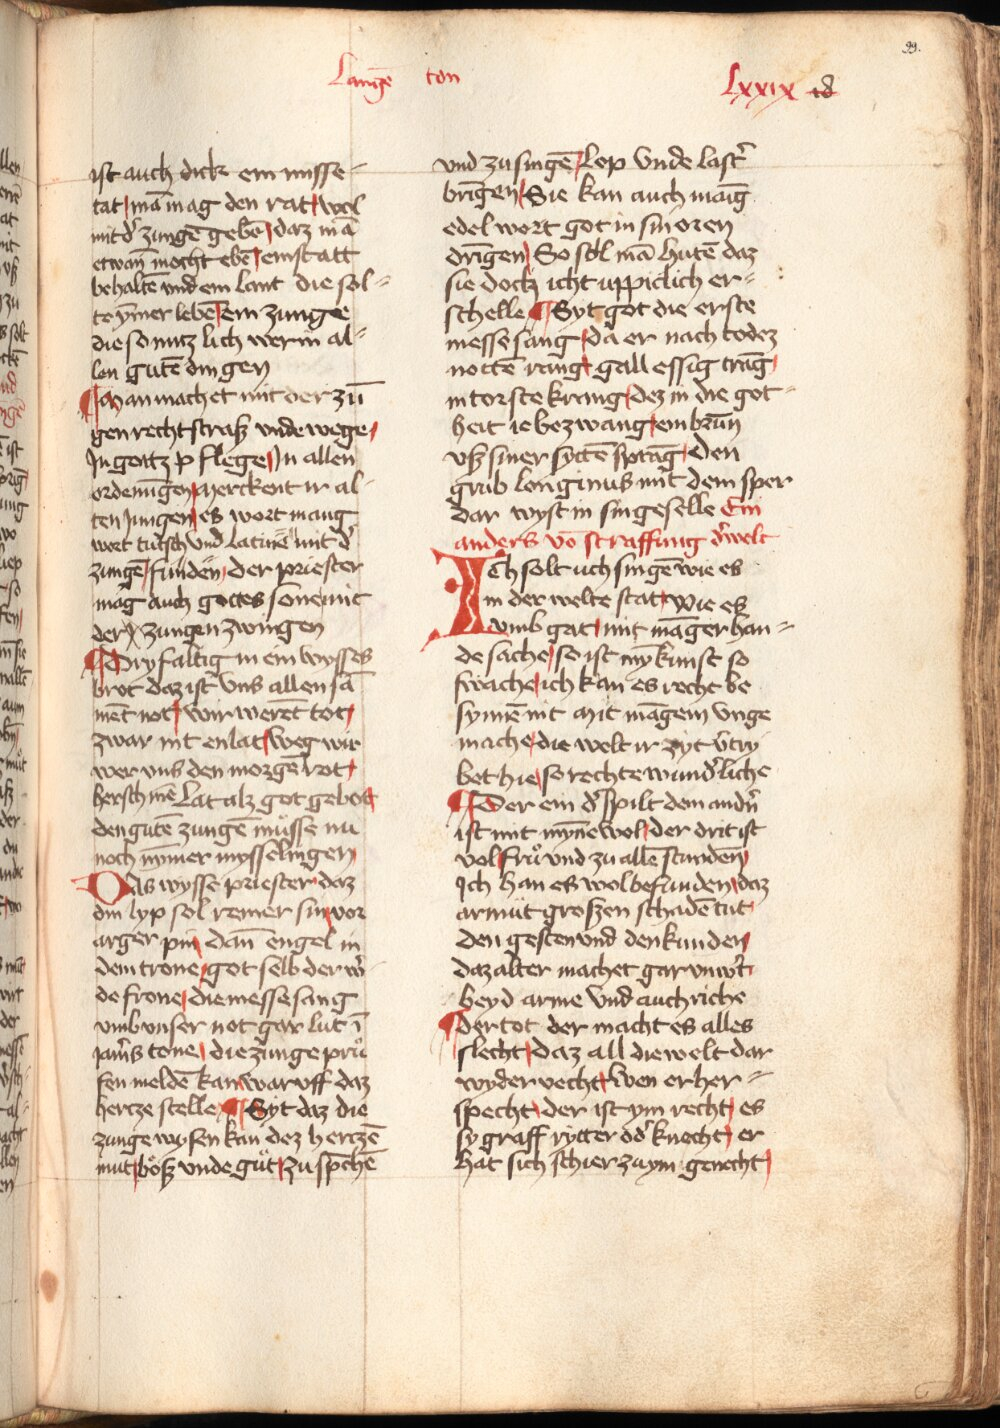 99.
Langē ton
Lxxix
ist auch dick ein misse-
tat mā mag den rat wol
mit d' zungē gebē daz mā
etwañ mocht ebē ein statt
behaltē und ein lant die sol-
te ym̄er lebē ein zunge
die so nutzlich wer in al-
len gutē dingen
Man machet mit der zū
gen recht straß unde wege
In gottz pflege In allen
ordenūgen Merckent ir al-
ten jungen es wort mang
wort tutsch und Latinē mit d'
zungē funden der priester
mag auch gottes son mit
der zungen zwingen
Dryfaltig in ein wysses
brot daz ist uns allen sā
mēt not wir werēt tot
zwar nit enlat weg wir
wer uns den morgē rot
hersch mē Lat alz got gebott
den gutē zungē müsse nu
noch nym̄er mysselingen
Das wysse priester daz
din lyp sol reiner sin vor
arger pin dañ engel in
dem trone got selb der w'
de frone die messe sang
umb unser not gar lut ī
jam's tone die zunge prü
fen meldē kan war uff daz
hertze stelle Syt daz die
zunge wysen kan dez hertzē
mut böß unde güt zu sp̄chē
und zu singē Lop unde last'
brīgen Sie kan auch māig
edel wort got in sin oren
drīgen So sol mā hutē daz
sie doch icht uppiclich er-
schelle Syt got die erste
messe sang da er nach todez
nottē rang gall essig trāg
in torste krang dez in die got-
heit ie bezwang ein brūn
uß siner sytē sprāg den
grub Longinus mit dem sper
dar wyst in sin geselle Ein
anders vō straffung d' welt
Ich solt uch singē wie es
in der welte stat wie es
umb gat mit māger han-
de sache so ist myn kunst so
swache ich kan es recht be
synnē nit Mit māgem unge
mache die welt ir zyt v'try
bet hie so rechte wund'liche
Der ein d' spilt dem andn'
ist mit mynē wol der drit ist
vol fru und zu allē stunden
Ich han es wol befunden daz
armüt groszen schadē tut
den gesten und den kunden
daz alter machet gar unw't
beyd arme und auch riche
der tot der macht es alles
slecht daz all die welt dar
wyder vecht wen er her-
specht der ist ym recht es
sy graff rytter od' knecht er
hat sich schier zu ym gerecht